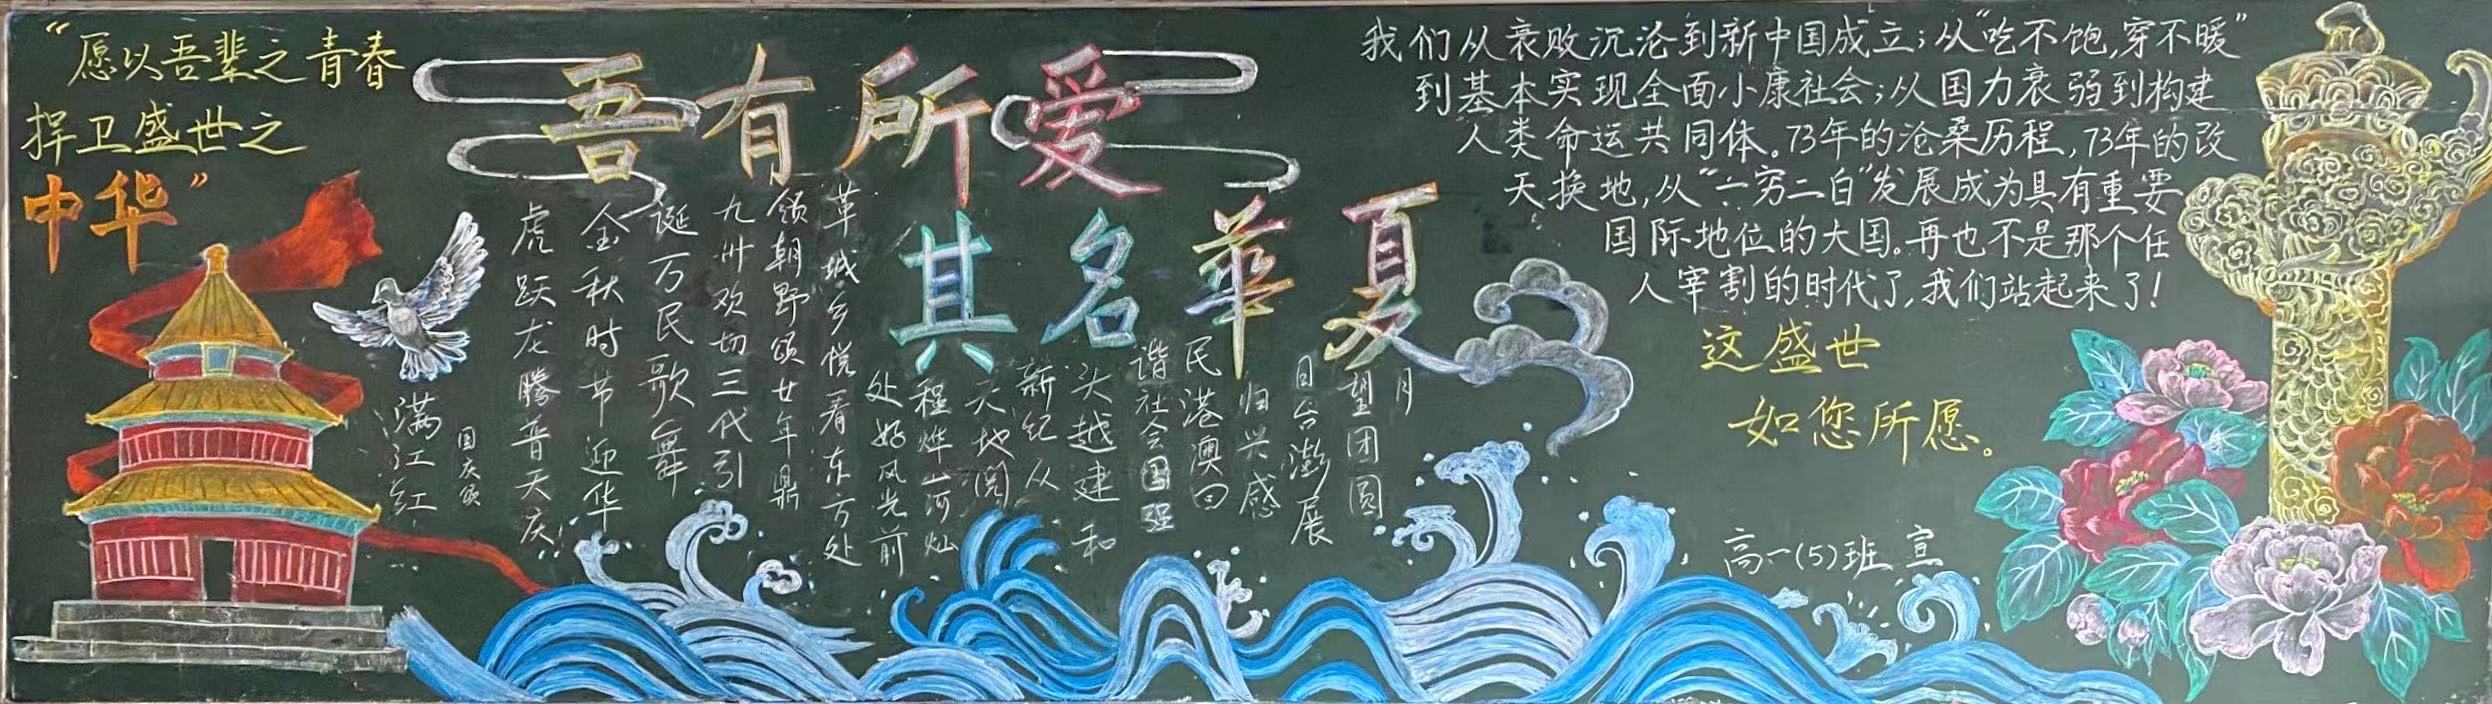 “愿以吾辈之青春
捍卫盛世之
中华”
吾有所爱
其名華夏
满江红
国庆颂
虎跃龙腾普天庆
金秋时节迎华
诞万民歌舞
九州欢切三代引
领朝野颂廿年鼎
革城乡悦看东方处
处好风光前
程烨山河灿
天地阔
新纪从
头越建和
谐社会国强
民港澳回
归兴感
日台澎展
望团圆
月
我们从衰败沉沦到新中国成立；从“吃不饱，穿不暖”
到基本实现全面小康社会；从国力衰弱到构建
人类命运共同体。73年的沧桑历程，73年的改
天换地，从“一穷二白”发展成为具有重要
国际地位的大国。再也不是那个任
人宰割的时代了，我们站起来了！
这盛世
如您所愿。
高一（5）班 宣